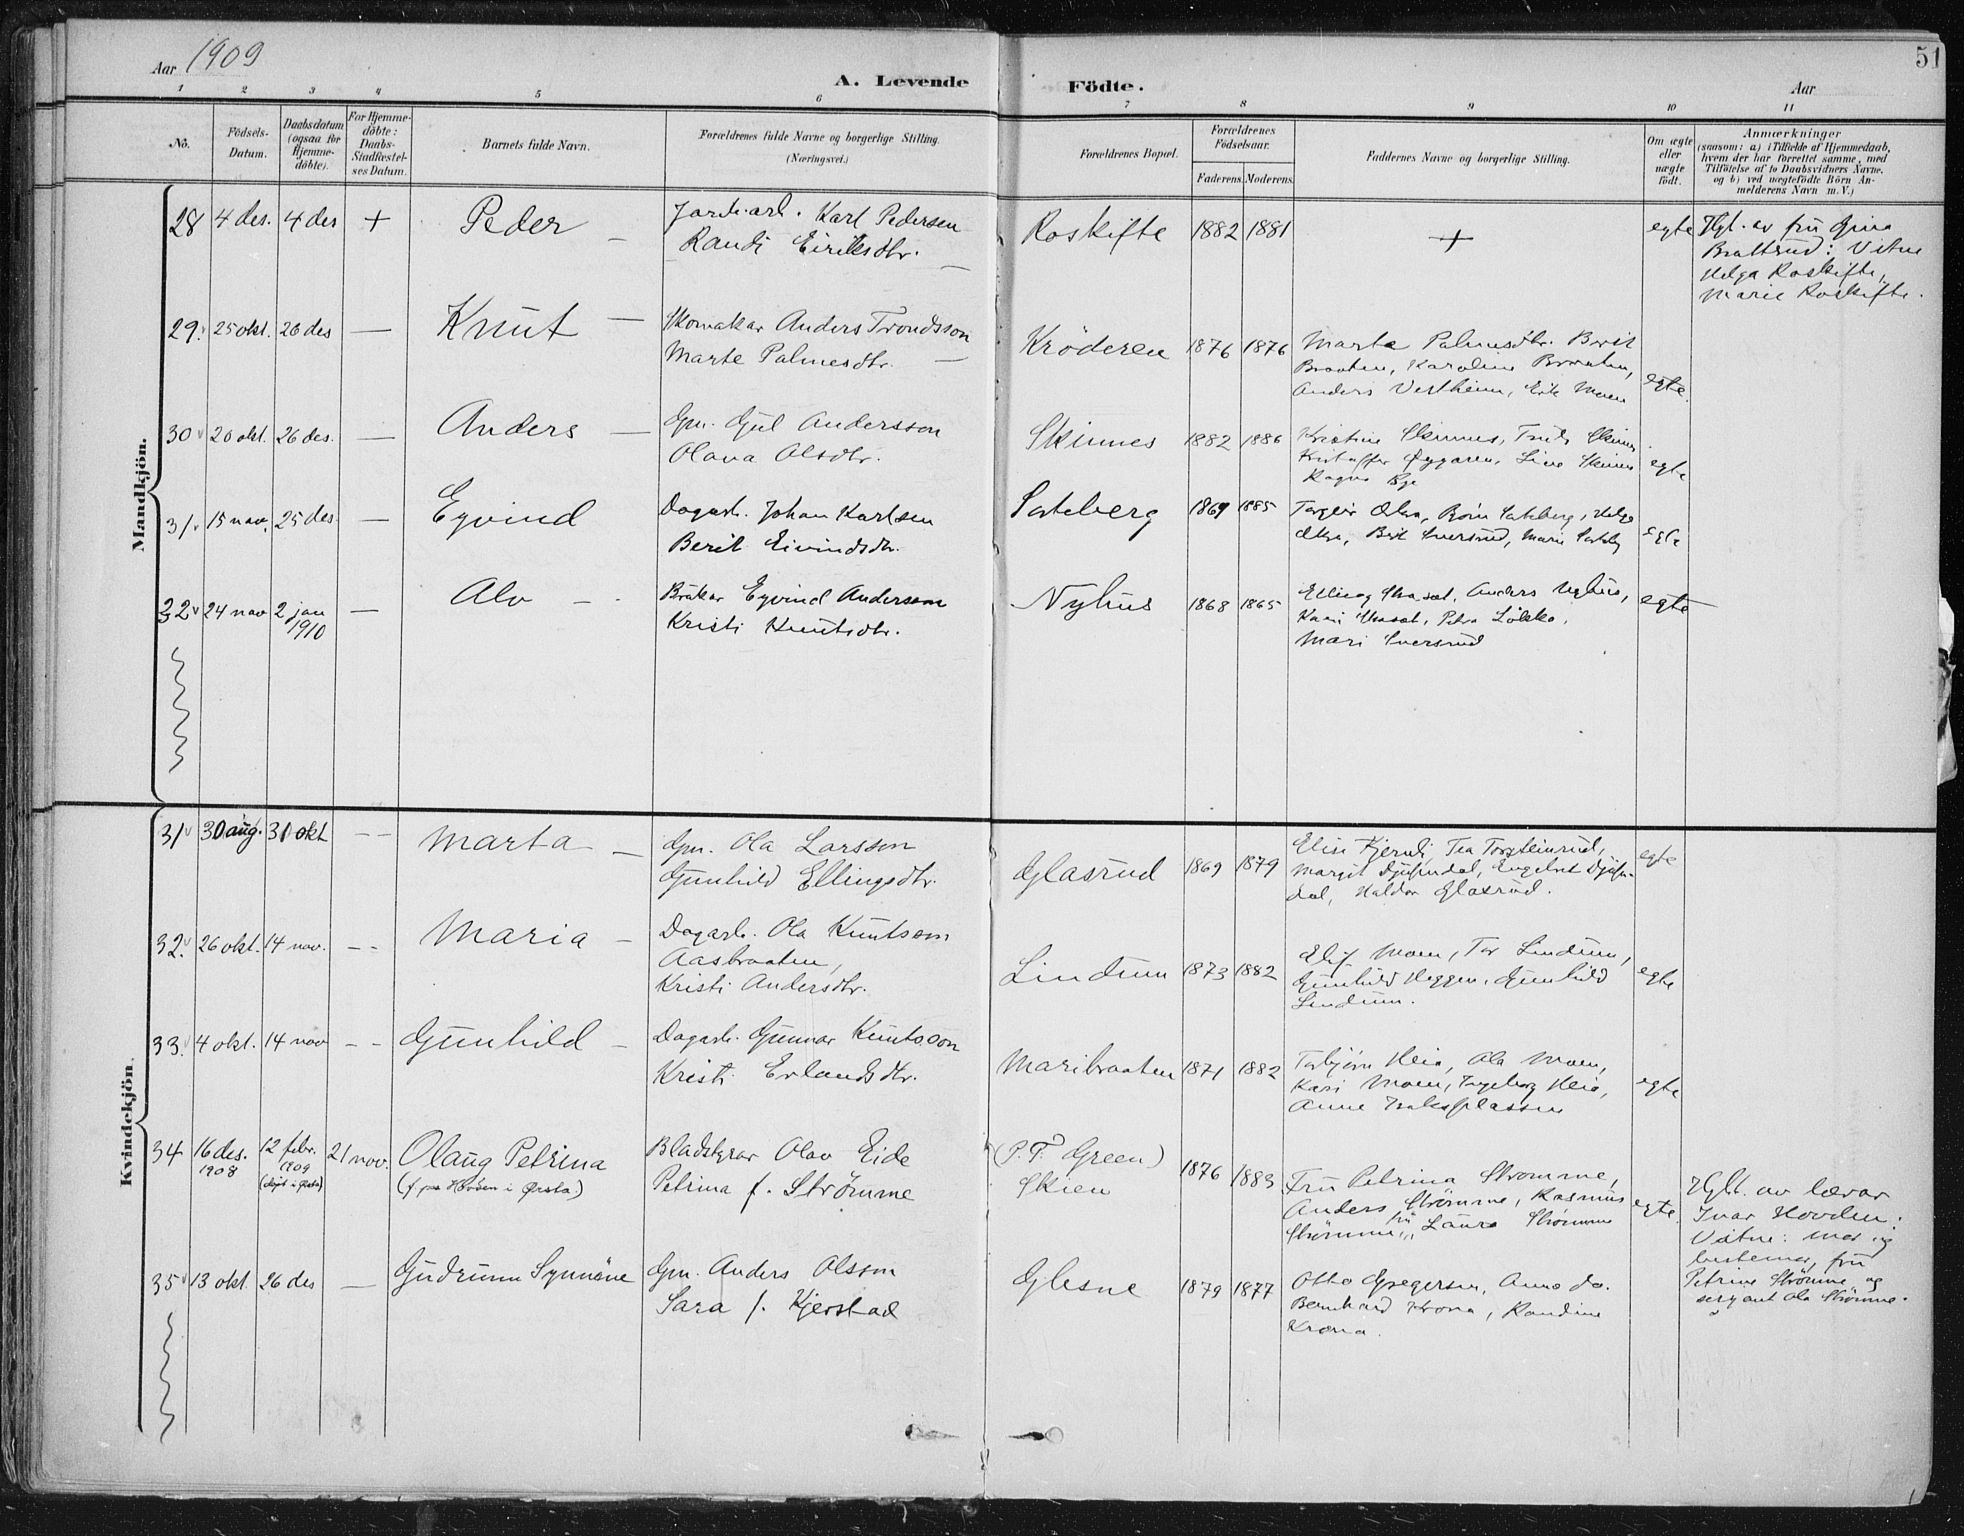 Aar 1909
A. Levende Födte.
Aar
51
1 2 3 4 5 6 7 8 9 10 11
No.
Födsels-Datum.
Daabsdatum (ogsaa for Hjemme-döbte).
For Hjemme-döbte: Daabs-Stadfæstel-ses Datum.
Barnets fulde Navn.
Forældrenes fulde Navne og borgerlige Stilling. (Næringsvei.)
Forældrenes Bopæl.
Forældrenes Födselsaar.
Faderens. Moderens.
Faddernes Navne og borgerlige Stilling.
Om ægte eller uægte födt.
Anmærkninger
(saasom: a) i Tilfælde af Hjemmedaab, hvem der har forrettet samme, med Tilföielse af to Daabsvidners Navne. og b) ved uægtefödte Börn An-melderens Navn m. V.)
Mandkjön.
28 4 des. 4 des + Peder —
Jordarb. Karl Pedersen
Randi Eiriksdtr. —
Roskifte 1882 1881 + egte
Hgt. av fru Gina
Brattrud: Vitne
Helga Roskifte,
Marie Roskifte.
29. 25 okt. 26 des — Knut —
Skomakar Anders Trondsson
Marte Palmesdtr. —
Krøderen 1876 1876
Marta Palmesdtr. Berit
Braaten, Karoline Braaten,
Anders Vestheim, Erik Moen
egte.
30 20 okt. 26 des. — Anders —
Gm. Gul Andersson
Olava Olsdtr.
Skinnes 1882 1886
Kristine Skinnes, Skinnes
Kristoffer Øygaren, Line Skinnes
Ragna Bye
egte
31. 15 nov. 25 des. — Eyvind
Dagarb. Johan Karlsen
Berit Eivindsdtr.
Sateberg 1869 1885
Olsen, Sateberg, Helge
Berit Sversrud, Marie
egte
32 24 nov 2 jan 1910 — Alv —
Brukar Eyvind Andersson
Kristi Knutsdtr.
Nyhus 1868 1865
Anders Nyhus,
Kari Petra Løkka,
Mari Sversrud
egte
Kvindekjön.
31 30 aug. 31 okt — Marta —
Gm. Ola Larsson
Gunhild Ellingsdtr.
Glasrud 1869 1879
Elise Tea Torsteinrud,
Margit Djupedal, Engebret Djupe-
dal, Haldor Glasrud.
egte
32. 26 okt. 14 nov. — Maria —
Dagarb. Ola Knutsson
Aasbraaten,
Kristi Andersdtr.
Lindum 1873 1882
Moen, Tor Lindum,
Gunhild Heggen, Gunhild
Lindum.
egte
33. 4 okt. 14 nov — Gunhild —
Dagarb. Gunnar Knutsson
Kristi Erlandsdtr.
Maribraaten 1871 1882
Torbjørn Heia, Ola Moen,
Kari Moen, Ingeborg Heia,
Anne
egte
34 16 des. 1908 12 febr. 1909 (døpt i Ørsta) 21 nov. Olaug Petrina
(f. paa Hovden i Ørsta)
Bladstyrar Olav Eide
Petrina f. Strömme
(P. T. Green)
Skien 1876 1883
Fru Petrina Strömme,
Anders Strömme, Rasmus
Strömme, fru Laura Strömme
egte.
Hgt. av lærar
Ivar Hovden:
Vitne: mor og
bestemor, fru
Petrina Strömme og
serjant Ola Strömme.
35 13 okt 26 des — Gudrunn Synnöve
Gm. Anders Olsson
Sara f. Kjerstad
Glesne 1879 1877
Otto Gregersen, Anna do.
Bernhard Krona, Randine
Krona.